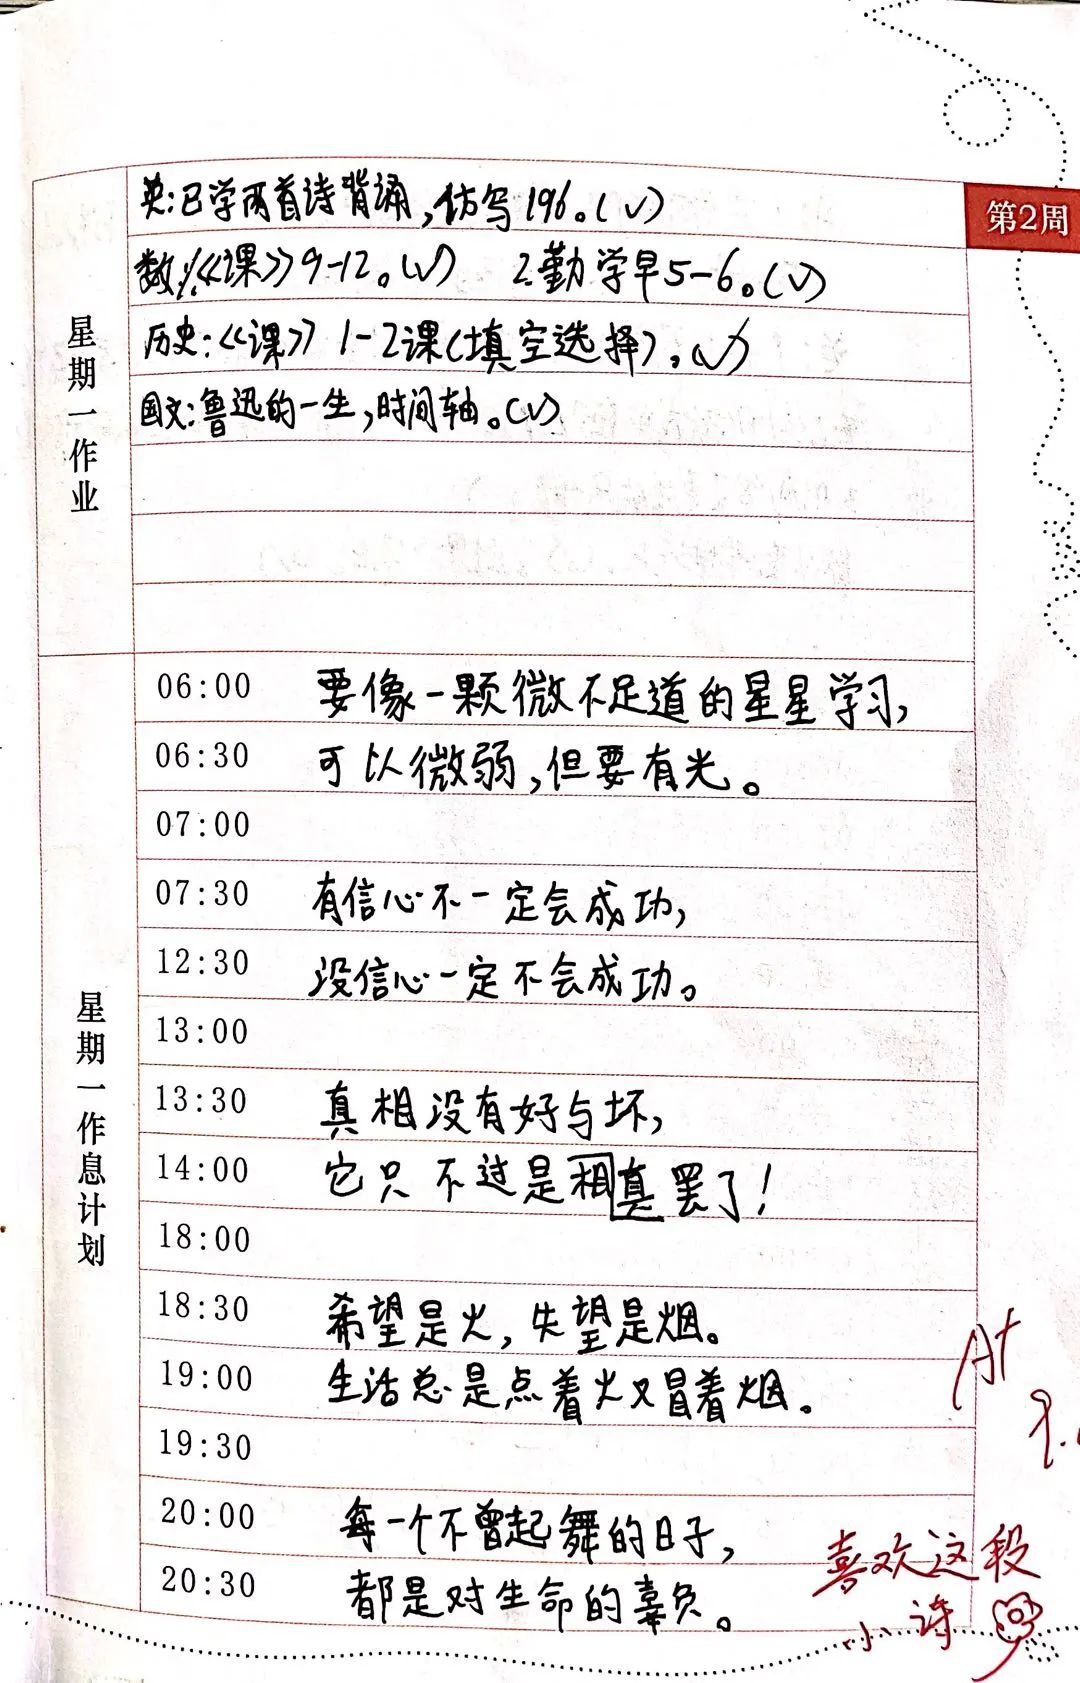 第2周
星期一作业
英:已学两首诗背诵,仿写196。(√)
数:1.《课》9-12。(√) 2.勤学早5-6。(√)
历史:《课》1-2课(填空选择)。(√)
国文:鲁迅的一生,时间轴。(√)
星期一作息计划
06:00 要像一颗微不足道的星星学习,
06:30 可以微弱,但要有光。
07:00
07:30 有信心不一定会成功,
12:30 没信心一定不会成功。
13:00
13:30 真相没有好与坏,
14:00 它只不过是相真罢了!
18:00
18:30 希望是火,失望是烟。
19:00 生活总是点着火又冒着烟。
19:30
20:00 每一个不曾起舞的日子,
20:30 都是对生命的辜负。
A+
喜欢这段
小诗